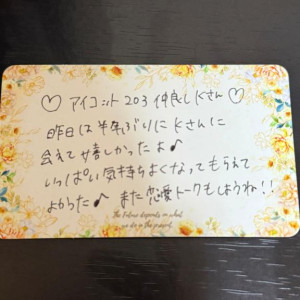 ♡ アイコット203 仲良しKさん ♡
昨日は半年ぶりにKさんに
会えて嬉しかったよ♪
いっぱい気持ちよくなってもらえて
よかった♪ また恋愛トークもしようね!!
The future depends on what
we do in the present.